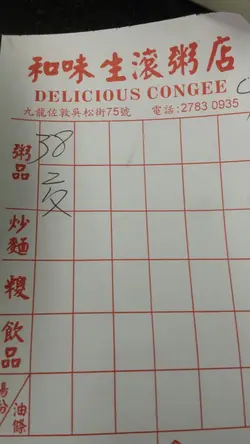 和味生滾粥店
DELICIOUS CONGEE
九龍佐敦吳松街75號 電話:2783 0935
粥品
38
炒麵
糉
飲品
油條